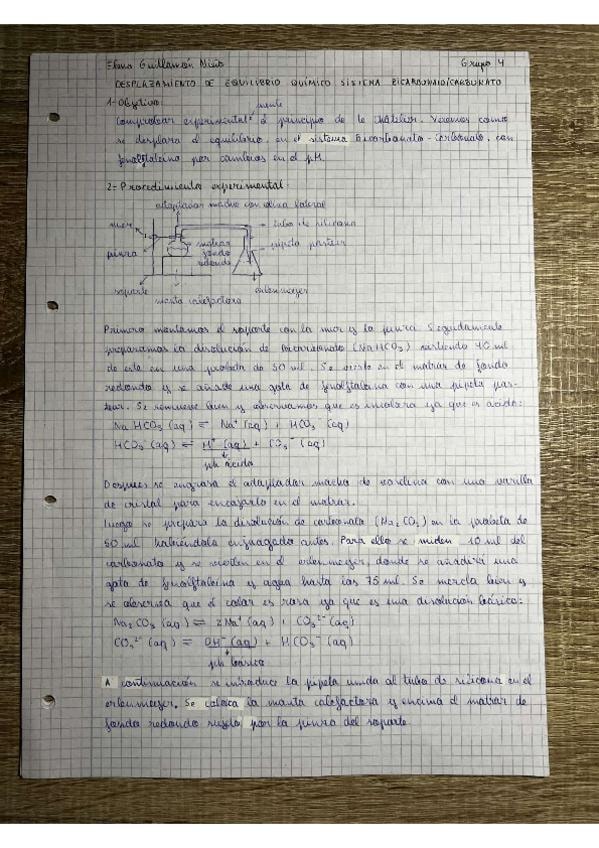 Elena Guillamón Grupo 4
DESPLAZAMIENTO DE EQUILIBRIO QUÍMICO SISTEMA BICARBONATO/CARBONATO
1- Objetivo:
mente
Comprobar experimental el principio de le Châtelier. Veremos como
se desplaza el equilibrio, en el sistema bicarbonato - carbonato, con
fenolftaleína por cambios en el pH.
2- Procedimiento experimental:
adaptador macho con oliva lateral
nuez tubo de silicona
pinza matraz fondo redondo pipeta pasteur
soporte erlenmeyer
manta calefactora
Primero montamos el soporte con la nuez y la pinza. Seguidamente
preparamos la disolución de bicarbonato (NaHCO3) vertiendo 40 ml
de esta en una probeta de 50 ml. Se vierte en el matraz de fondo
redondo y se añade una gota de fenolftaleína con una pipeta pas-
teur. Se remueve bien y observamos que es incolora ya que es ácida:
NaHCO3 (aq) ⇌ Na+ (aq) + HCO3- (aq)
HCO3- (aq) ⇌ H+ (aq) + CO3- (aq)
ph ácido
Después se engrasa el adaptador macho de con una varilla
de cristal para encajarlo en el matraz.
Luego se prepara la disolución de carbonato (Na2CO3) en la probeta de
50 ml habiéndola enjuagado antes. Para ello se miden 10 ml del
carbonato y se vierten en el erlenmeyer, donde se añadirá una
gota de fenolftaleína y agua hasta los 75 ml. Se mezcla bien y
se observa que el color es rosa ya que es una disolución básica:
Na2CO3 (aq) ⇌ 2Na+ (aq) + CO3 2- (aq)
CO3 2- (aq) ⇌ OH- (aq) + HCO3- (aq)
ph básico
A continuación se introduce la pipeta unida al tubo de silicona en el
erlenmeyer. Se coloca la manta calefactora y encima el matraz de
fondo redondo sujeto por la pinza del soporte.